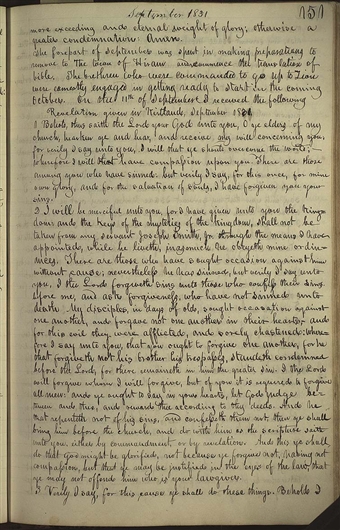 September 1831
151
more exceeding and eternal weight of glory; otherwise a
greater condemnation. Amen.
The forepart of September was spent in making preparations to
remove to the town of Hiram and commence the translation of
bible. The brethren who were commanded to go up to Zion
were earnestly engaged in getting ready to start in the coming
October. On the 11th of September I received the following
Revelation given in Kirtland, September 1831.
1 Behold, thus saith the Lord your God unto you, O ye elders of my
church, hearken ye and hear, and receive my will concerning you;
for verily I say unto you, I will that ye should overcome the world;
wherefore I will have compassion upon you. There are those
among you who have sinned; but verily I say, for this once, for mine
own glory, and for the salvation of souls, I have forgiven you your
sins.
2 I will be merciful unto you, for I have given unto you the king-
dom: and the keys of the mysteries of the kingdom, shall not be
taken from my servant Joseph Smith, jr. through the means I have
appointed, while he liveth, inasmuch as he obeyeth mine ordin-
ances. There are those who have sought occasion against him
without cause; nevertheless he has sinned, but verily I say unto
you, I the Lord forgiveth sins unto those who confess their sins
before me, and ask forgiveness, who have not sinned unto
death. My disciples, in days of old, sought occasion against
one another, and forgave not one another in their hearts, and
for this evil they were afflicted, and sorely chastened: where-
fore I say unto you, that you ought to forgive one another, for he
that forgiveth not his brother his trespasses, standeth condemned
before the Lord, for there remaineth in him the greater sin. I the Lord
will forgive whom I will forgive, but of you it is required to forgive
all men: and ye ought to say in your hearts, let God judge be-
tween me and thee, and reward thee according to thy deeds. And he
that repenteth not of his sins, and confesseth them not, then ye shall
bring him before the church, and do with him as the scripture saith
unto you, either by commandment or by revelation. And this ye shall
do that God might be glorified, not because ye forgive not, having not
compassion, but that ye may be justified in the eyes of the law, that
ye may not offend him who is your lawgiver.
3 Verily I say, for this cause ye shall do these things. Behold I